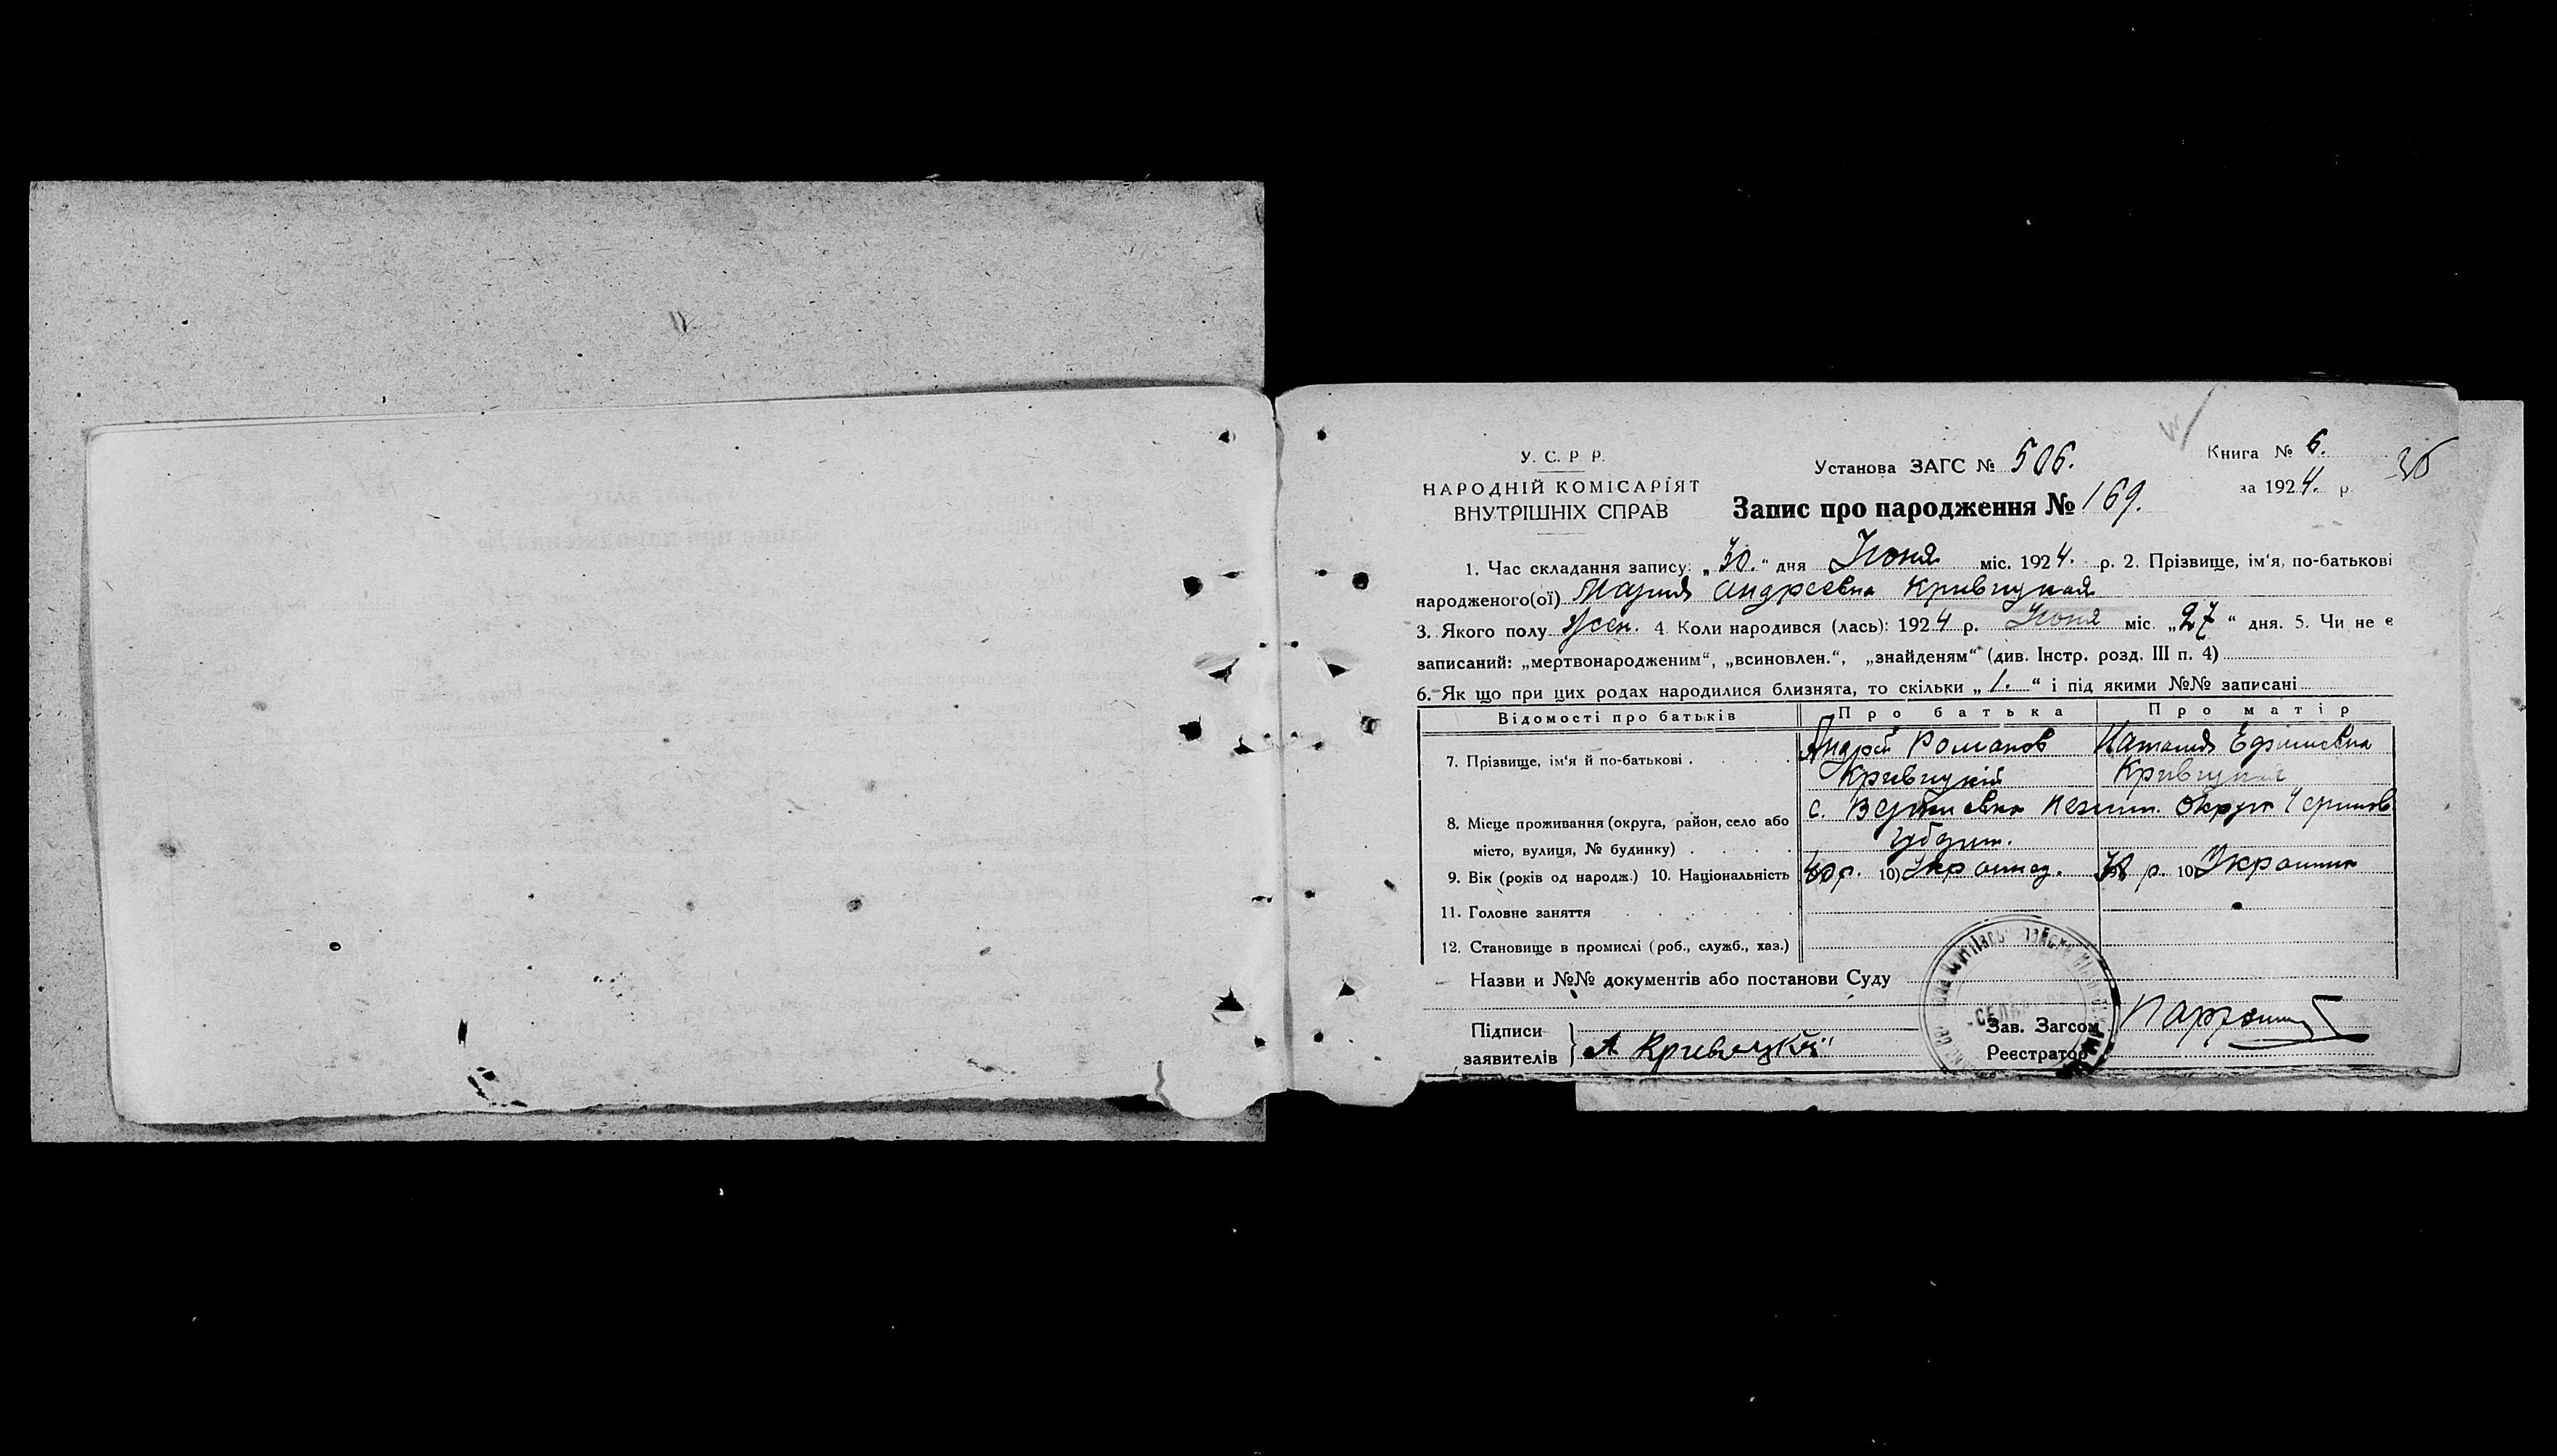 У. С. Р. Р.
НАРОДНІЙ КОМІСАРІЯТ
ВНУТРІШНІХ СПРАВ
Установа ЗАГС № 506.
Книга № 6.
за 1924. р.
36
Запис про народження № 169.
1. Час складання запису: „30.“ дня Июня міс. 1924. р. 2. Прізвище, ім'я, по-батькові
народженого(ої) Мария Андреевна Кривицкая
3. Якого полу Жен. 4. Коли народився (лась): 1924 р. Июня міс. „27“ дня. 5. Чи не є
записаний: „мертвонародженим“, „всиновлен.“, „знайденям“ (див. Інстр. розд. III п. 4)
6. Як що при цих родах народилися близнята, то скільки „1.“ і під якими №№ записані
Відомості про батьків Про батька Про матір
7. Прізвище, ім'я й по-батькові Андрей Романов Наталия Ефимовна
Кривицкий Кривицкая
8. Місце проживання (округа, район, село або с. Вертиевка Нежин. Округа Чернигов
місто, вулиця, № будинку) Губерн.
9. Вік (років од народж.) 10. Національність р. 10) р. 10)
11. Головне заняття
12. Становище в промислі (роб., служб., хаз.)
Назви и №№ документів або постанови Суду
Підписи
заявителів А Кривицкий
Зав. Загсом
Реєстратор